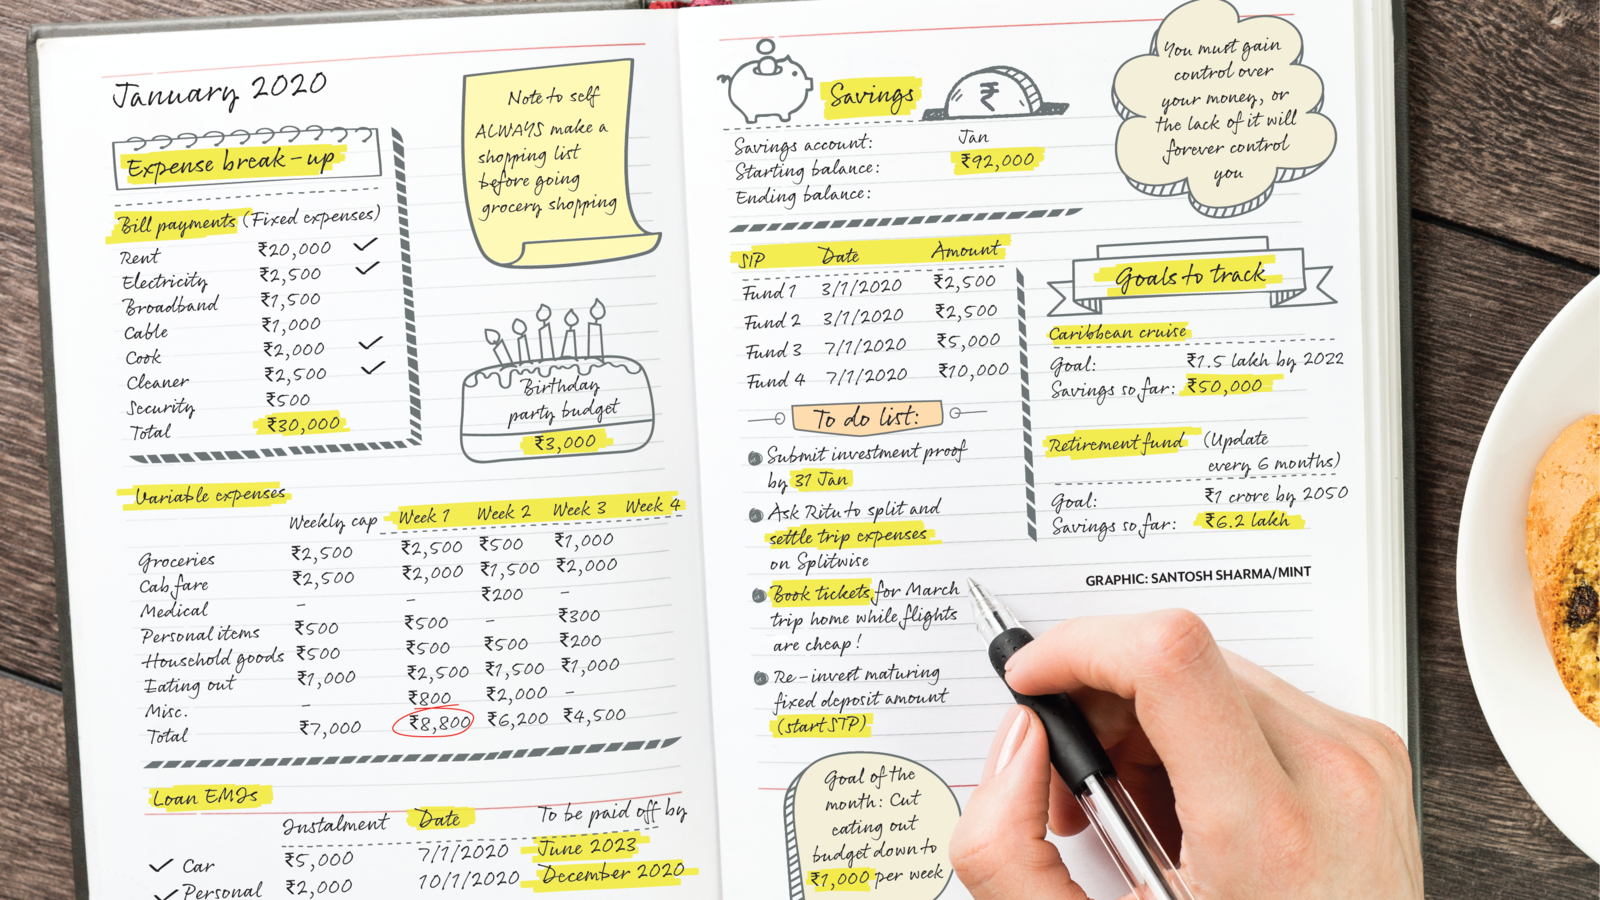 January 2020
Expense break-up
Bill payments (Fixed expenses)
Rent ₹20,000
Electricity ₹2,500
Broadband ₹1,500
Cable ₹1,000
Cook ₹2,000
Cleaner ₹2,500
Security ₹500
Total ₹30,000
Note to self
ALWAYS make a
shopping list
before going
grocery shopping
Birthday
party budget
₹3,000
Variable expenses
Weekly cap Week 1 Week 2 Week 3 Week 4
Groceries ₹2,500 ₹2,500 ₹500 ₹1,000
Cab fare ₹2,500 ₹2,000 ₹1,500 ₹2,000
Medical – – ₹200 –
Personal items ₹500 ₹500 – ₹300
Household goods ₹500 ₹500 ₹500 ₹200
Eating out ₹1,000 ₹2,500 ₹1,500 ₹1,000
Misc. – ₹800 ₹2,000 –
Total ₹7,000 ₹8,800 ₹6,200 ₹4,500
Loan EMIs
Instalment Date To be paid off by
Car ₹5,000 7/1/2020 June 2023
Personal ₹2,000 10/1/2020 December 2020
Savings
₹
Jan
Savings account:
Starting balance: ₹92,000
Ending balance:
You must gain
control over
your money, or
the lack of it will
forever control
you
SIP Date Amount
Fund 1 3/1/2020 ₹2,500
Fund 2 3/1/2020 ₹2,500
Fund 3 7/1/2020 ₹5,000
Fund 4 7/1/2020 ₹10,000
To do list:
Submit investment proof
by 31 Jan
Ask Ritu to split and
settle trip expenses
on Splitwise
Book tickets for March
trip home while flights
are cheap!
Re-invest maturing
fixed deposit amount
(start STP)
Goal of the
month: Cut
eating out
budget down to
₹1,000 per week
Goals to track
Caribbean cruise
Goal: ₹1.5 lakh by 2022
Savings so far: ₹50,000
Retirement fund (Update
every 6 months)
Goal: ₹1 crore by 2050
Savings so far: ₹6.2 lakh
GRAPHIC: SANTOSH SHARMA/MINT